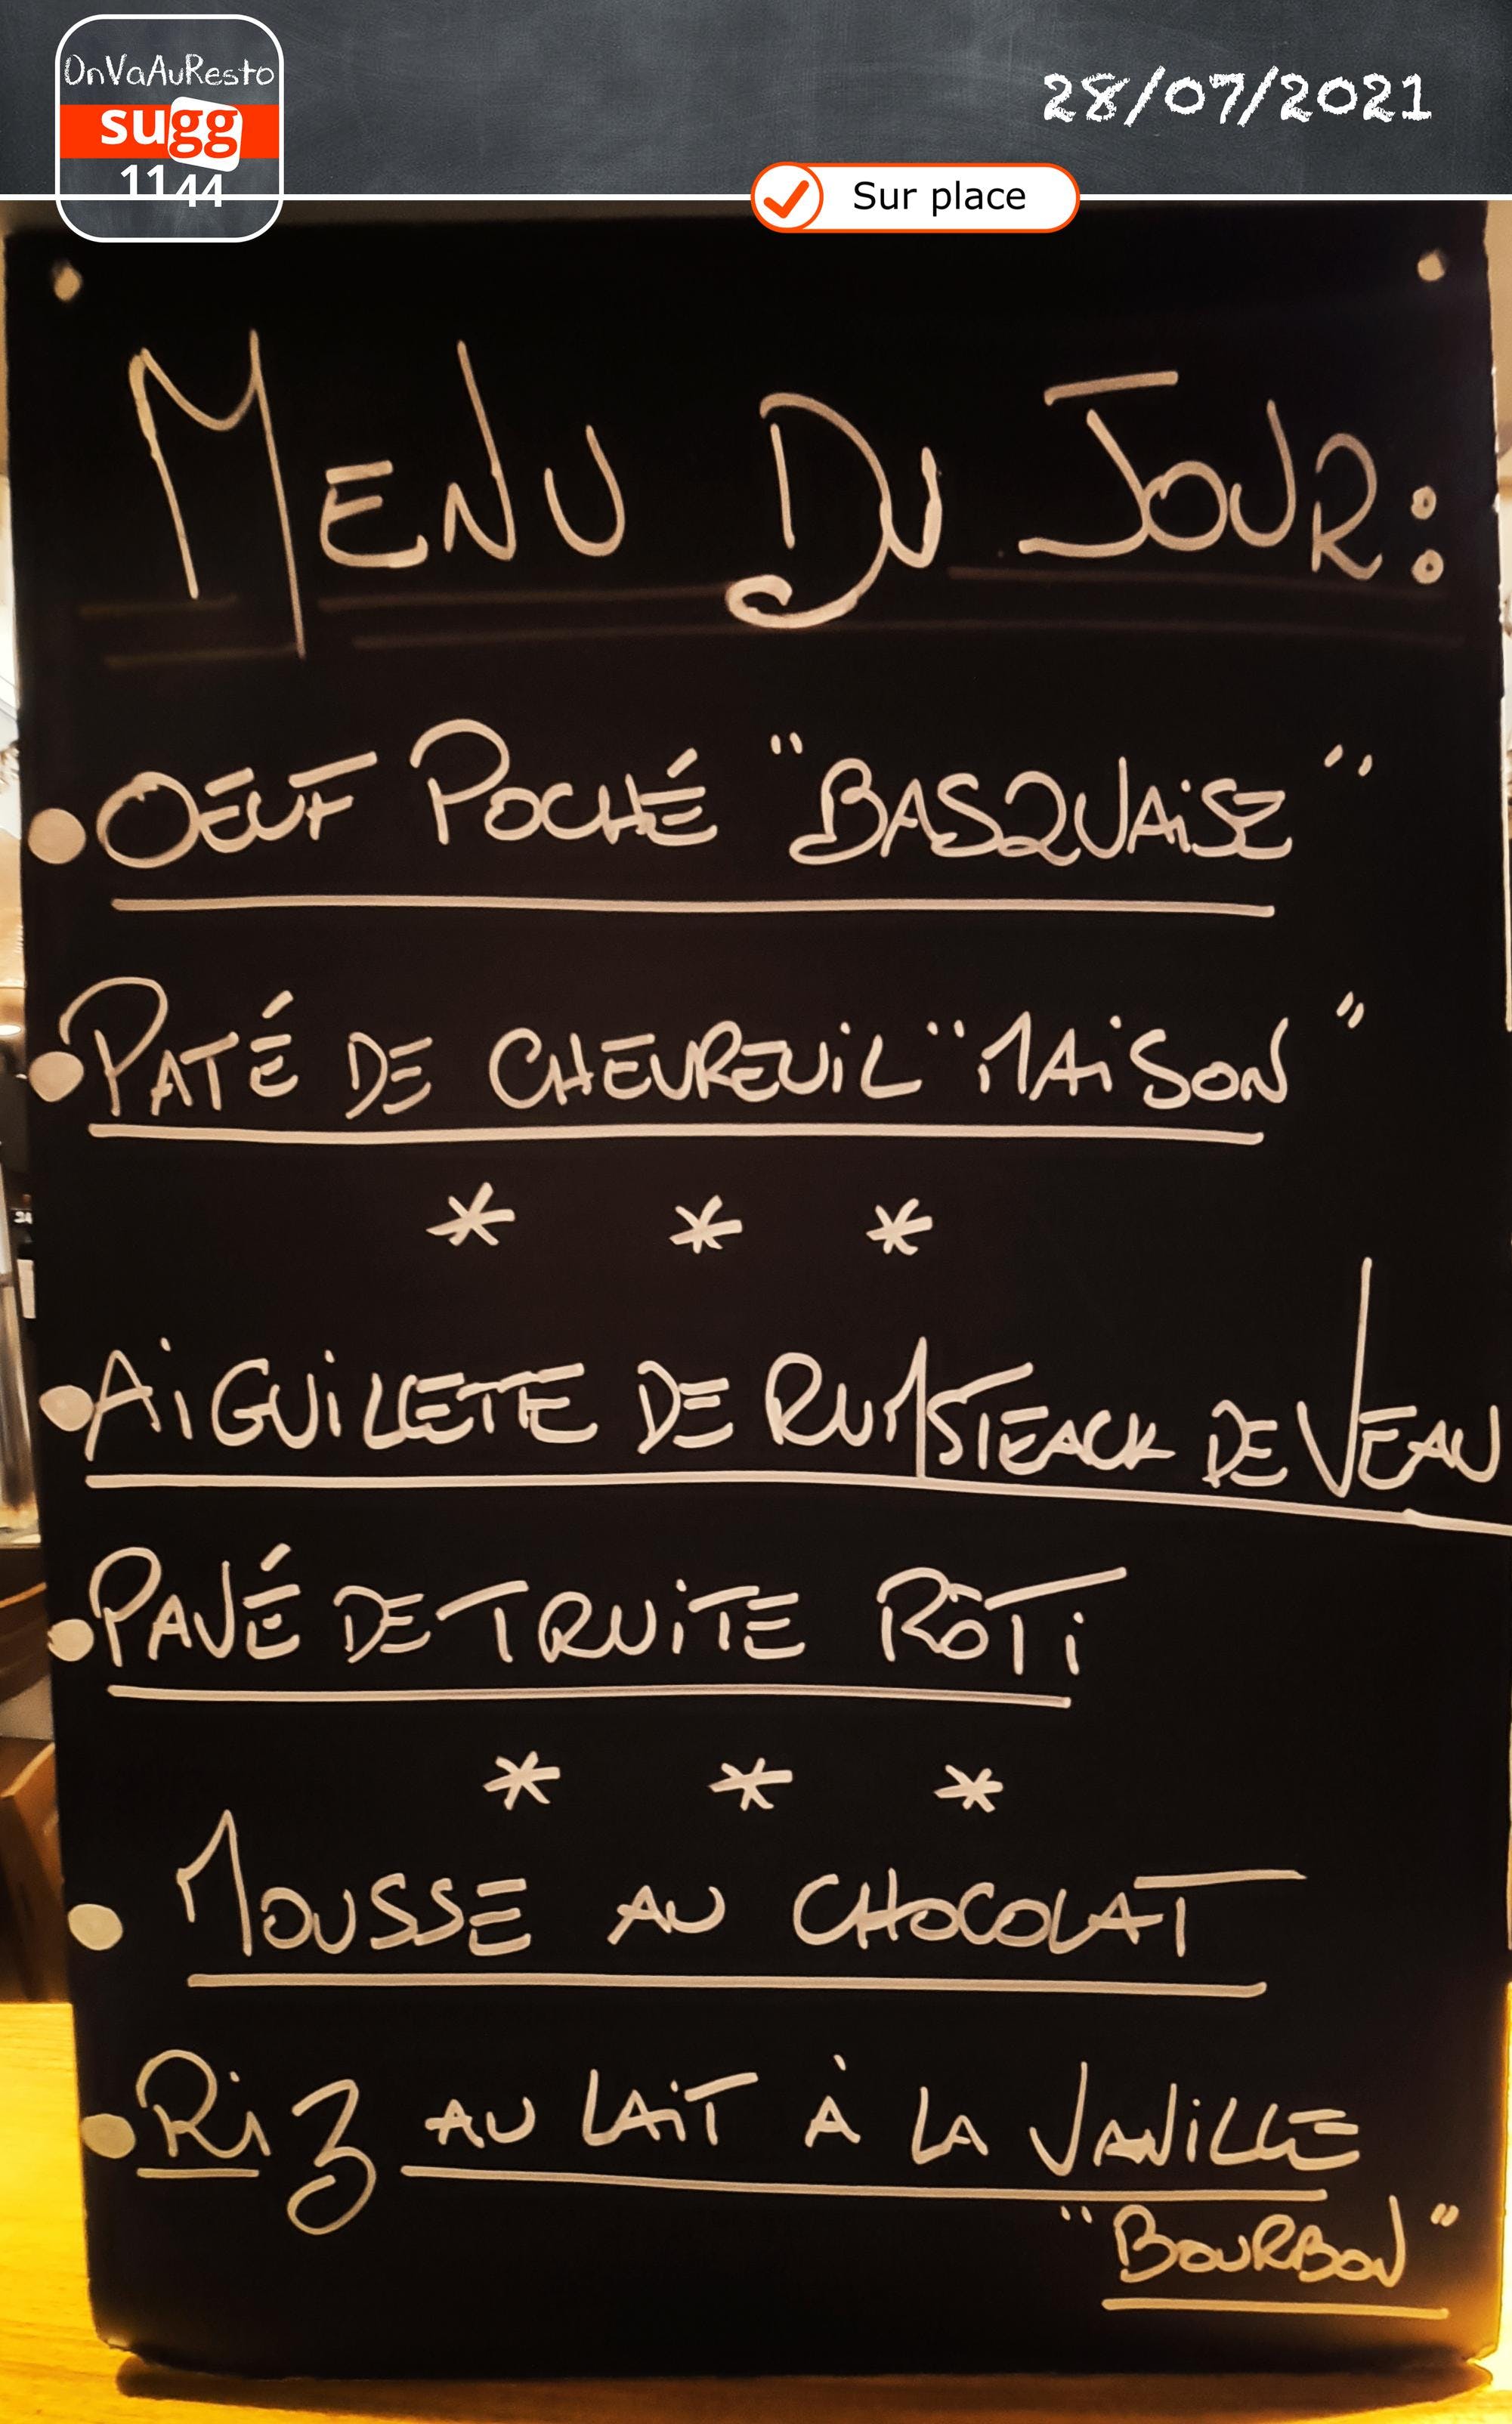 OnVaAuResto
sugg
1144
28/07/2021
Sur place
MENU DU JOUR:
•OEUF POCHÉ "BASQUAISE"
•PATÉ DE CHEVREUIL "MAISON"
* * *
•AIGUILLETTE DE RUMSTEACK DE VEAU
•PAVÉ DE TRUITE RÔTI
* * *
• MOUSSE AU CHOCOLAT
•RIZ AU LAIT À LA VANILLE
"BOURBON"